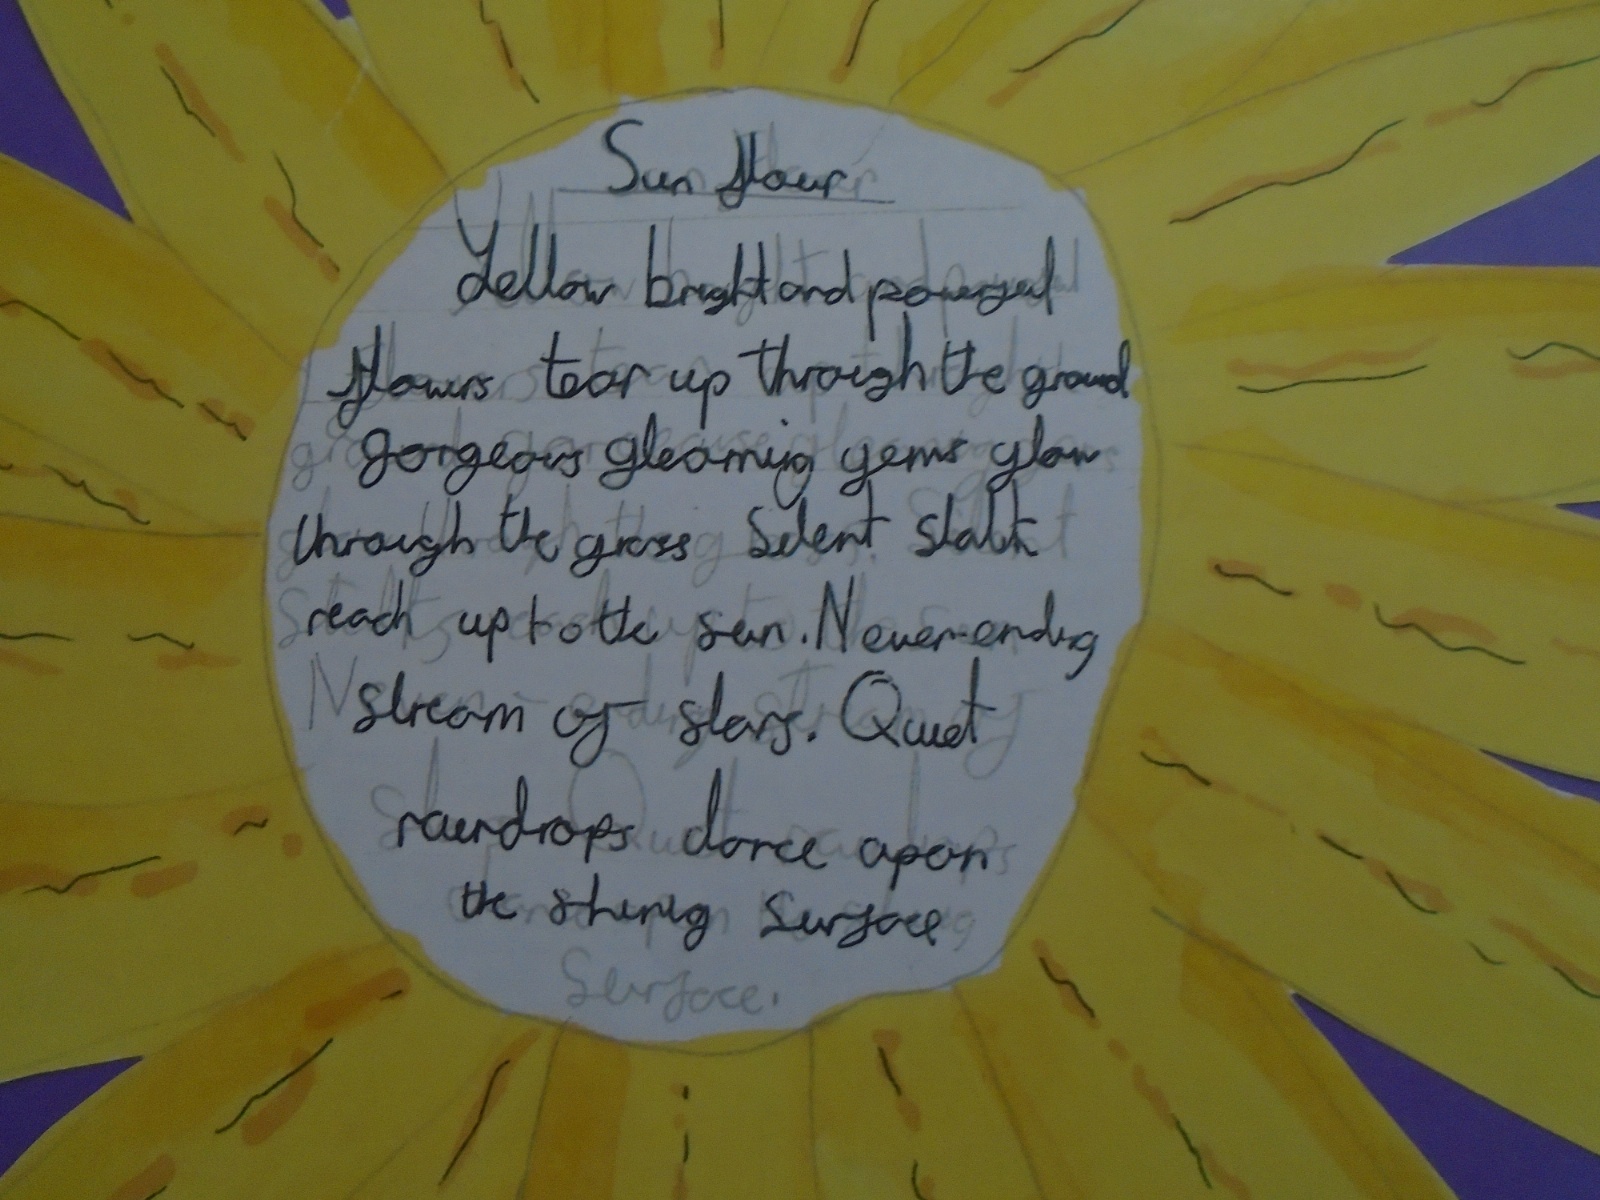 Sun flower
Yellow bright and powerful
flowers tear up through the ground
gorgeous gleaming gems glow
through the grass Silent stalk
reach up to the sun. Never-ending
stream of stars. Quiet
raindrops dance apon
the shining Surface
Surface.